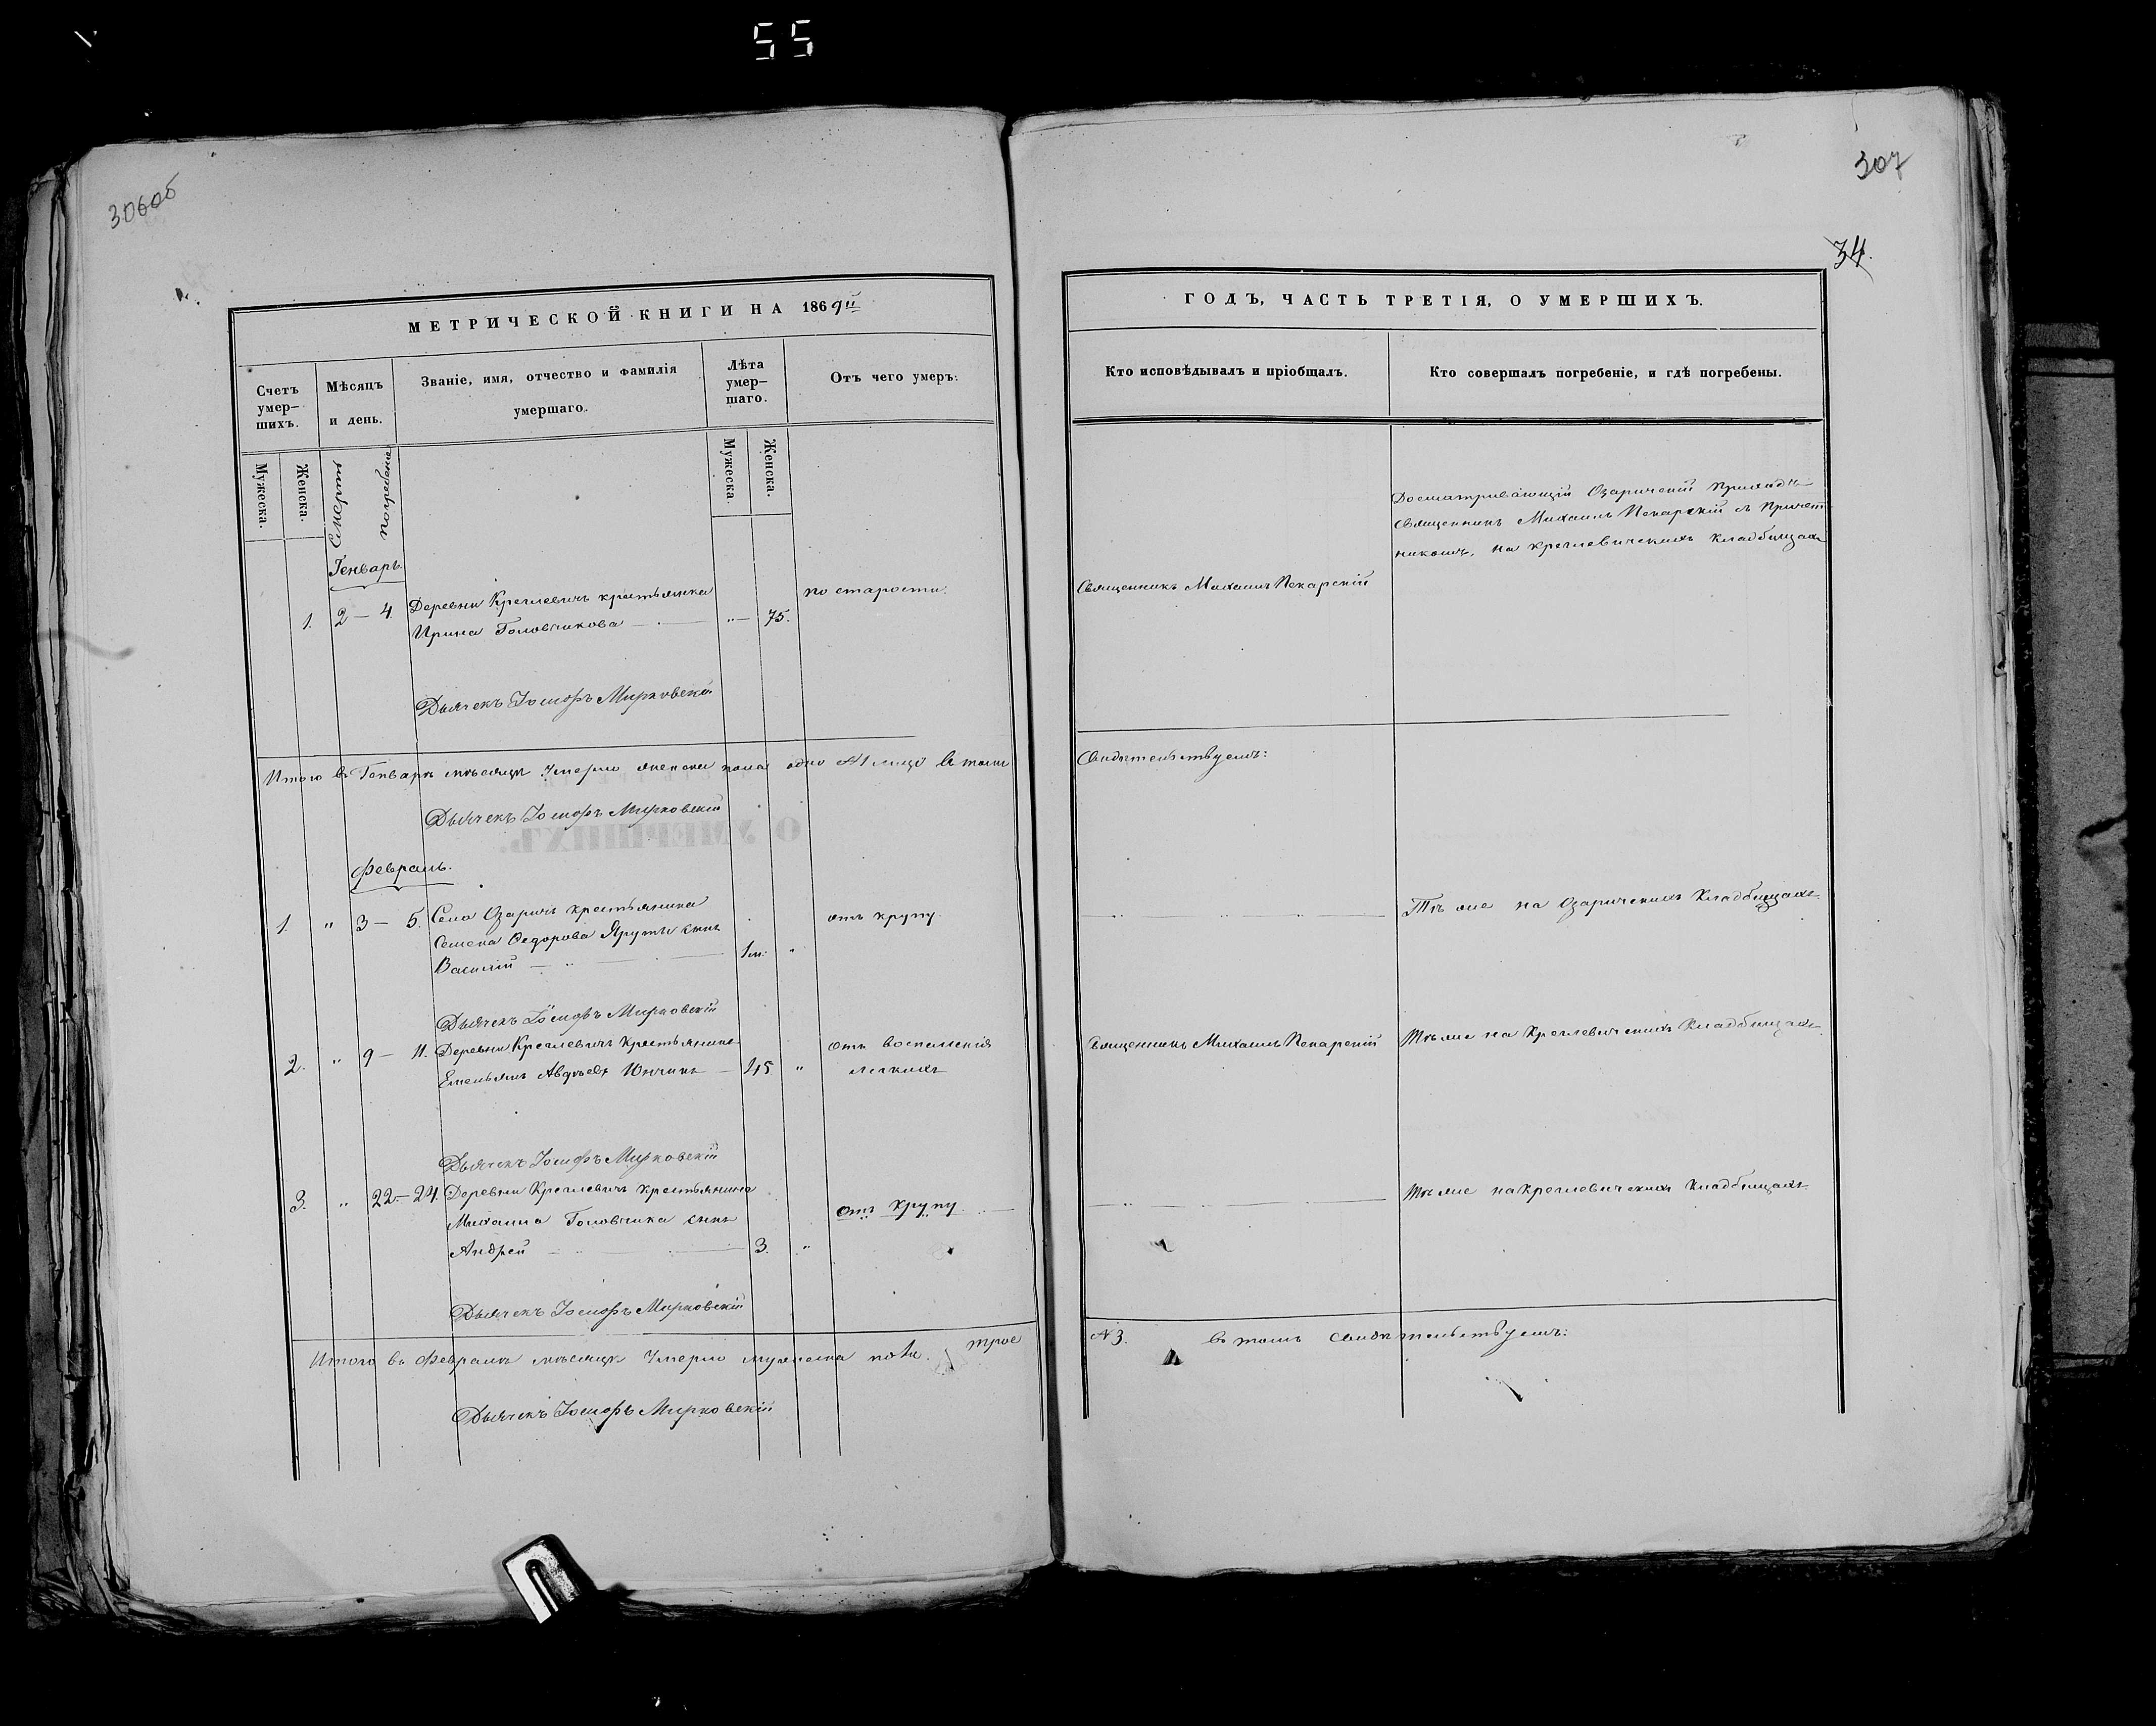 55
306об
307
34.
МЕТРИЧЕСКОЙ КНИГИ НА 1869й
Счетъ умер-
шихъ.
Мѣсяцъ
и день.
Званіе, имя, отчество и фамилія
умершаго.
Лѣта
умер-
шаго.
Отъ чего умеръ.
Мужеска.
Женска.
Смерти
Погребенія
Мужеска.
Женска.
Генварь.
1. 2 — 4. Деревни Креглевичъ крестьянка по старости.
Ирина Головчикова — „ — 75.
Дьячекъ Іосифъ Мирковскій
Итого въ Генварѣ мѣсяцѣ умерло женска пола одно №1 лице въ томъ
Дьячекъ Іосифъ Мирковскій
О УМЕРШИХЪ.
Февраль.
1 „ 3 — 5. Села Озаричъ крестьянина отъ крупу.
Семена Федорова сынъ
Василій — 1м. „
Дьячекъ Іосифъ Мирковскій
2. „ 9 — 11. Деревни Креглевичъ крестьянинъ отъ воспаленія
Емельянъ Авдѣевъ — 45. „ легкихъ
Дьячекъ Іосифъ Мирковскій
3. „ 22 — 24. Деревни Креглевичъ крестьянина
Михаила Головчика сынъ отъ крупу.
Андрей — 3. „
Дьячекъ Іосифъ Мирковскій
Итого въ Февралѣ мѣсяцѣ умерло мужеска пола трое
Дьячекъ Іосифъ Мирковскій
ГОДЪ, ЧАСТЬ ТРЕТІЯ, О УМЕРШИХЪ.
Кто исповѣдывалъ и пріобщалъ.
Кто совершалъ погребеніе, и гдѣ погребены.
Досматривающій Озаричскій приходъ
священникъ Михаилъ Пекарскій съ причет-
никомъ, на креглевичскихъ кладбищахъ
Священникъ Михаилъ Пекарскій
Свидѣтельствуемъ:
Тѣ же на Озаричскихъ кладбищахъ
Священникъ Михаилъ Пекарскій Тѣ же на Креглевичскихъ кладбищахъ
Тѣ же на креглевичскихъ кладбищахъ
№3. въ томъ свидѣтельствуемъ: